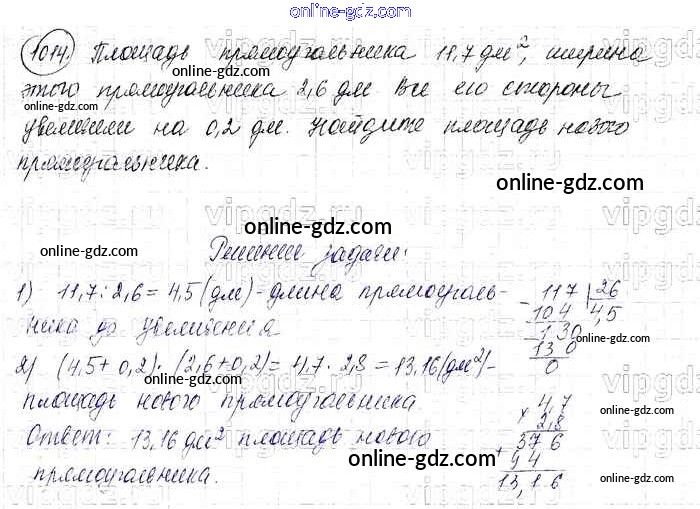 online-gdz.com
1014. Площадь прямоугольника 11,7 дм², ширина
этого прямоугольника 2,6 дм Все его стороны
увеличили на 0,2 дм. Найдите площадь нового
прямоугольника.
online-gdz.com
online-gdz.com
online-gdz.com
Решение задачи:
1) 11,7 : 2,6 = 4,5 (дм) - длина прямоуголь-
ника до увеличения
2) (4,5 + 0,2) · (2,6 + 0,2) = 4,7 · 2,8 = 13,16 (дм²) -
площадь нового прямоугольника
Ответ: 13,16 дм² площадь нового
прямоугольника.
117 | 26
- 104 | 4,5
- 130
130
0
× 4,7
2,8
+ 376
94
13,16
online-gdz.com
online-gdz.com
online-gdz.com
online-gdz.com
online-gdz.com
online-gdz.com